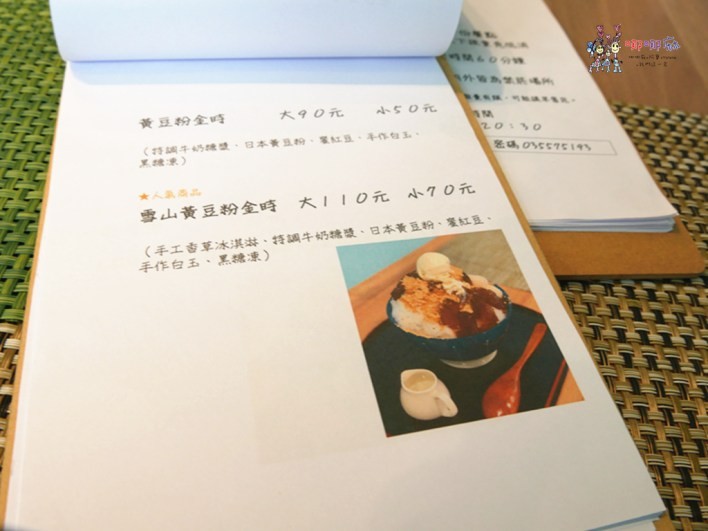 黃豆粉金時 大90元 小50元
（特調牛奶糖漿、日本黃豆粉、蜜紅豆、手作白玉、
黑糖凍）
★人氣商品
雪山黃豆粉金時 大110元 小70元
（手工香草冰淇淋、特調牛奶糖漿、日本黃豆粉、蜜紅豆、
手作白玉、黑糖凍）
時間60分鐘
外皆為禁菸場所
時間
20：30
密碼 035575193